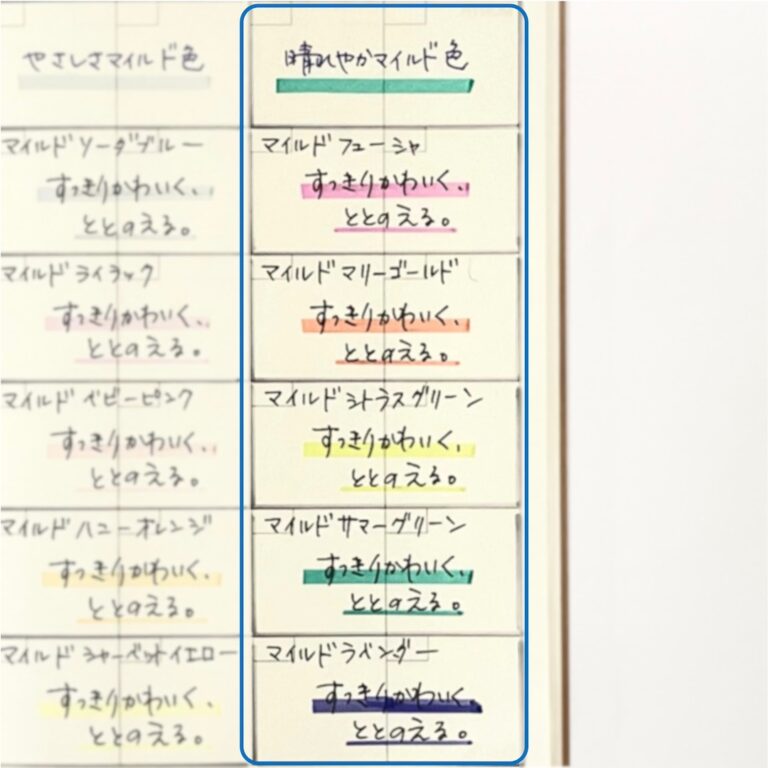 やさしさマイルド色
マイルドソーダブルー
すっきりかわいく、
ととのえる。
マイルドライラック
すっきりかわいく、
ととのえる。
マイルドベビーピンク
すっきりかわいく、
ととのえる。
マイルドハニーオレンジ
すっきりかわいく、
ととのえる。
マイルドシャーベットイエロー
すっきりかわいく、
ととのえる。
晴れやかマイルド色
マイルドフューシャ
すっきりかわいく、
ととのえる。
マイルドマリーゴールド
すっきりかわいく、
ととのえる。
マイルドシトラスグリーン
すっきりかわいく、
ととのえる。
マイルドサマーグリーン
すっきりかわいく、
ととのえる。
マイルドラベンダー
すっきりかわいく、
ととのえる。